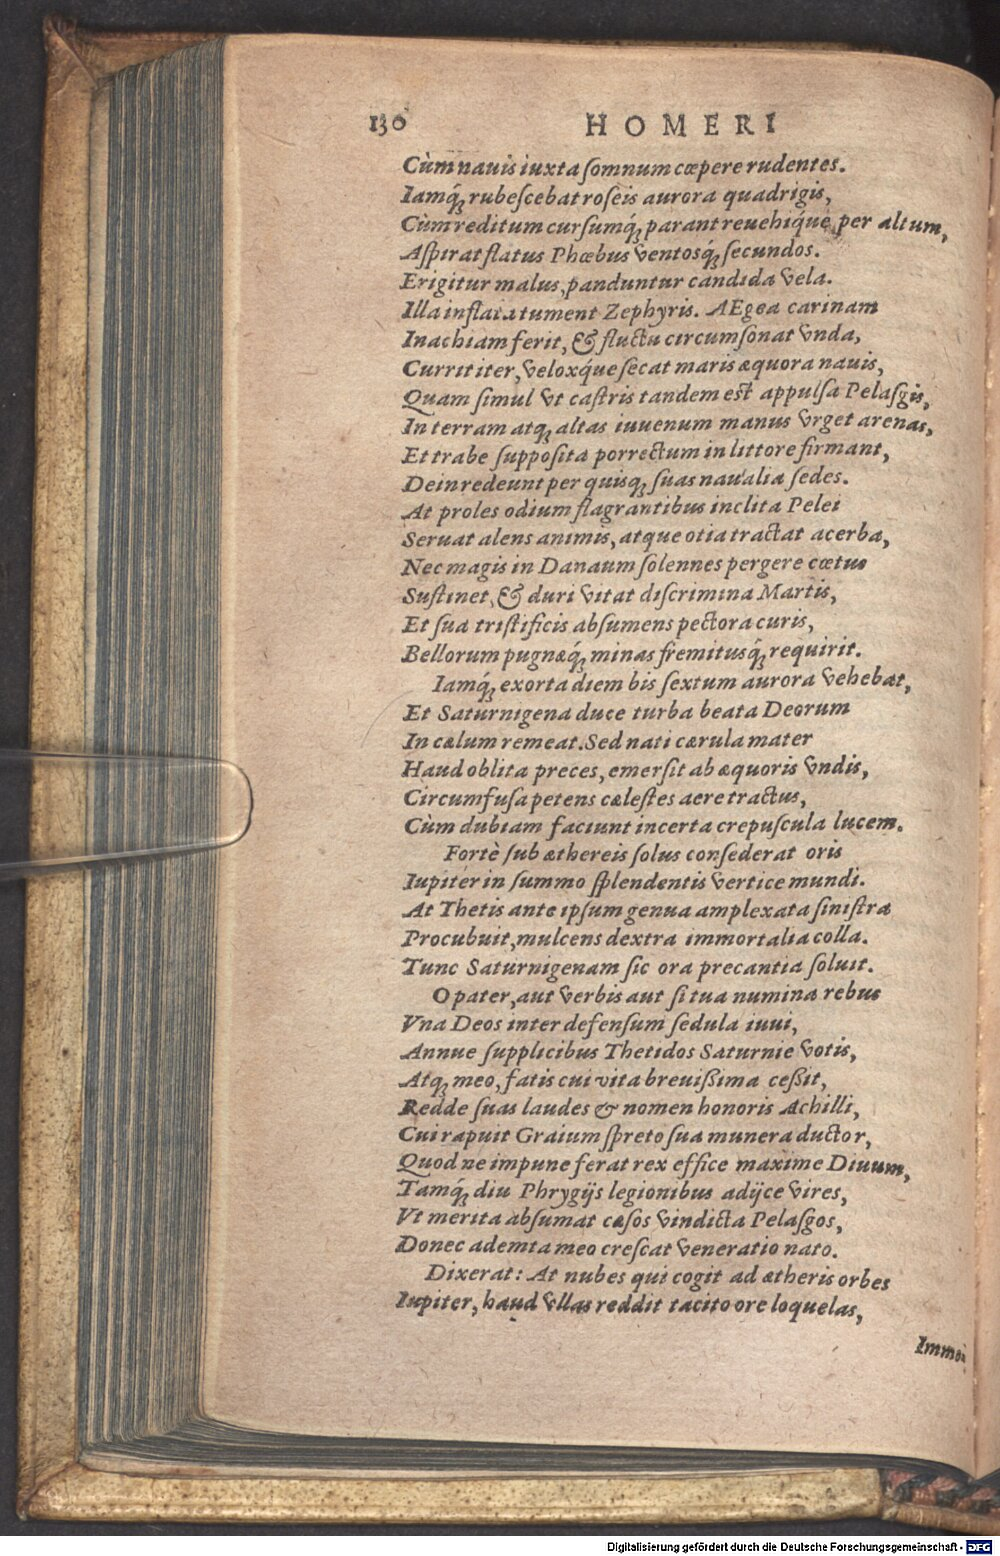 130 HOMERI
Cùm nauis iuxta ſomnum cœpere rudentes.
Iamq́; rubeſcebat roſeis aurora quadrigis,
Cùm reditum curſumq́; parant reuehiq́ue per altum,
Aſpirat flatus Phœbus ventosq́; ſecundos.
Erigitur malus, panduntur candida vela.
Illa inflata tument Zephyris. AEgea carinam
Inachiam ferit, & fluctu circumſonat vnda,
Currit iter, veloxq́ue ſecat maris æquora nauis,
Quam ſimul vt caſtris tandem est appulſa Pelaſgis,
In terram atq; altas iuuenum manus vrget arenas,
Et trabe ſuppoſita porrectum in littore firmant,
Dein redeunt per quisq; ſuas naualia ſedes.
At proles odium flagrantibus inclita Pelei
Seruat alens animis, atque otia tractat acerba,
Nec magis in Danaum ſolennes pergere cœtus
Suſtinet, & duri vitat diſcrimina Martis,
Et ſua triſtificis abſumens pectora curis,
Bellorum pugnæq́; minas fremitusq́; requirit.
Iamq́; exorta diem bis ſextum aurora vehebat,
Et Saturnigena duce turba beata Deorum
In cælum remeat. Sed nati cærula mater
Haud oblita preces, emerſit ab æquoris vndis,
Circumfuſa petens cæleſtes aere tractus,
Cùm dubiam faciunt incerta crepuſcula lucem.
Fortè ſub æthereis ſolus conſederat oris
Iupiter in ſummo ſplendentis vertice mundi.
At Thetis ante ipſum genua amplexata ſiniſtra
Procubuit, mulcens dextra immortalia colla.
Tunc Saturnigenam ſic ora precantia ſoluit.
O pater, aut verbis aut ſi tua numina rebus
Vna Deos inter defenſum ſedula iuui,
Annue ſupplicibus Thetidos Saturnie votis,
Atq; meo, fatis cui vita breuißima ceßit,
Redde ſuas laudes & nomen honoris Achilli,
Cui rapuit Graium ſpreto ſua munera ductor,
Quod ne impune ferat rex effice maxime Diuum,
Tamq́; diu Phrygijs legionibus adijce vires,
Vt merita abſumat cæſos vindicta Pelaſgos,
Donec ademta meo creſcat veneratio nato.
Dixerat: At nubes qui cogit ad ætheris orbes
Iupiter, haud vllas reddit tacito ore loquelas,
Immo
Digitalisierung gefördert durch die Deutsche Forschungsgemeinschaft - DFG